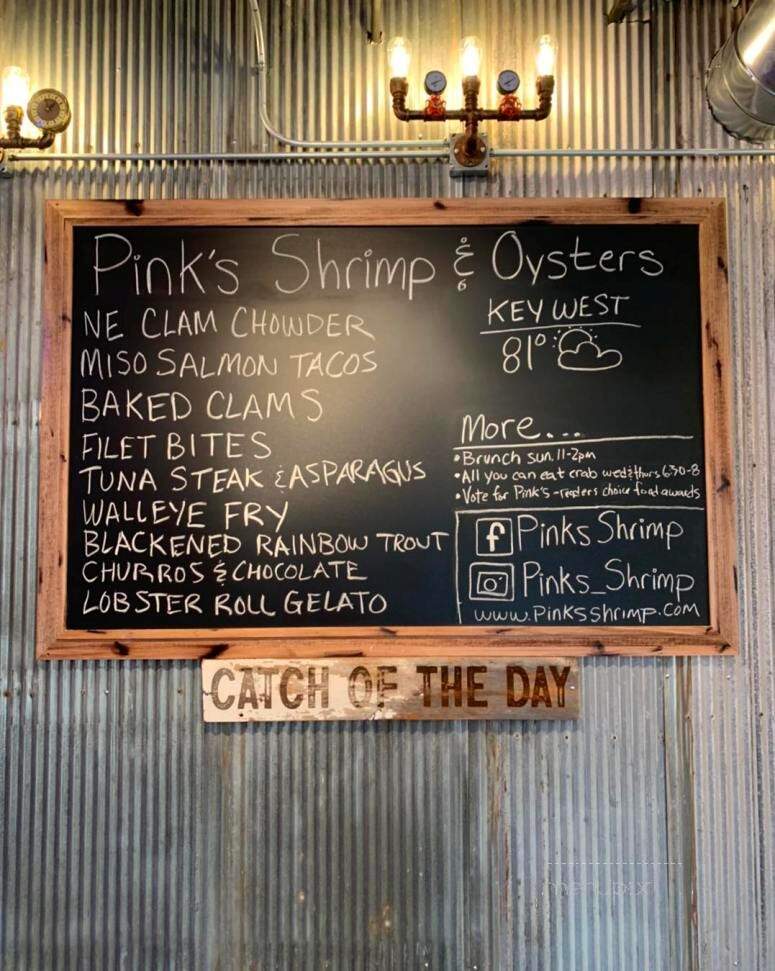 Pink's Shrimp & Oysters
NE CLAM CHOWDER
MISO SALMON TACOS
BAKED CLAMS
FILET BITES
TUNA STEAK & ASPARAGUS
WALLEYE FRY
BLACKENED RAINBOW TROUT
CHURROS & CHOCOLATE
LOBSTER ROLL GELATO
KEY WEST
81°
More...
• Brunch sun. 11-2pm
• All you can eat crab wed & thurs 630-8
• Vote for Pink's - readers choice food awards
f Pinks Shrimp
Pinks_Shrimp
www.Pinksshrimp.com
CATCH OF THE DAY
menupix